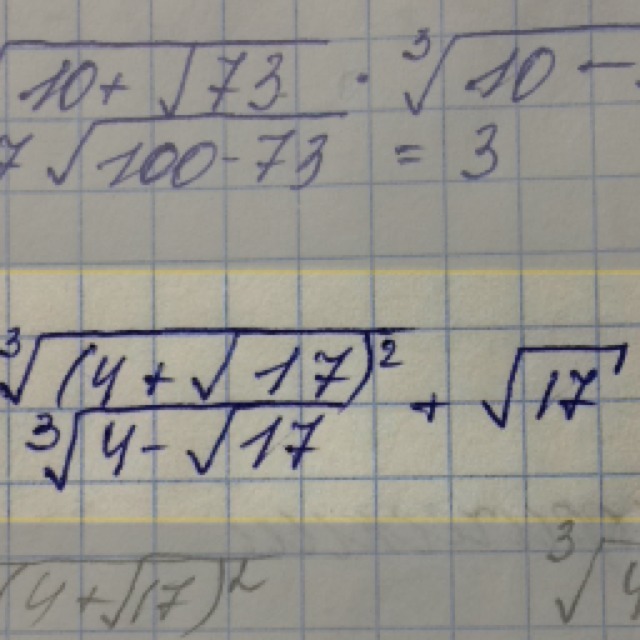 √10+√73 · ∛10-
√100-73 = 3
∛(4+√17)²
∛4-√17 + √17
(4+√17)² ∛4